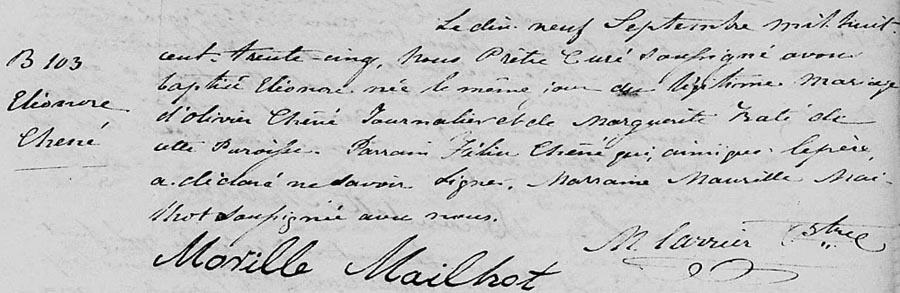 B 103
Eléonore
Chêné
Le dix neuf Septembre mil huit
cent-trente-cinq, Nous Prêtre Curé soussigné avons
baptisé Eléonore née le même jour du légitime Mariage
d'olivier Chêné Journalier et de Marguerite Traté de
cette Paroisse. Parrain Félix Chêné qui, ainsi que le père,
a déclaré ne savoir signer, Marraine Maurille Mai-
lhot soussignée avec nous.
Morille Mailhot
M Carrier Ptre